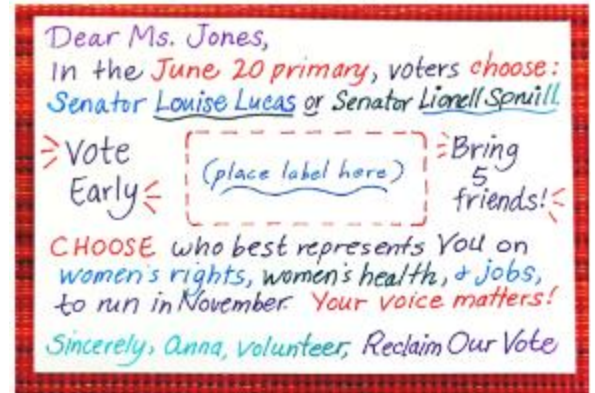 Dear Ms. Jones,
In the June 20 primary, voters choose:
Senator Louise Lucas or Senator Lionell Spruill.
Vote
Early
(place label here)
Bring
5
friends!
CHOOSE who best represents You on
women's rights, women's health, & jobs,
to run in November. Your voice matters!
Sincerely, Anna, volunteer, Reclaim Our Vote